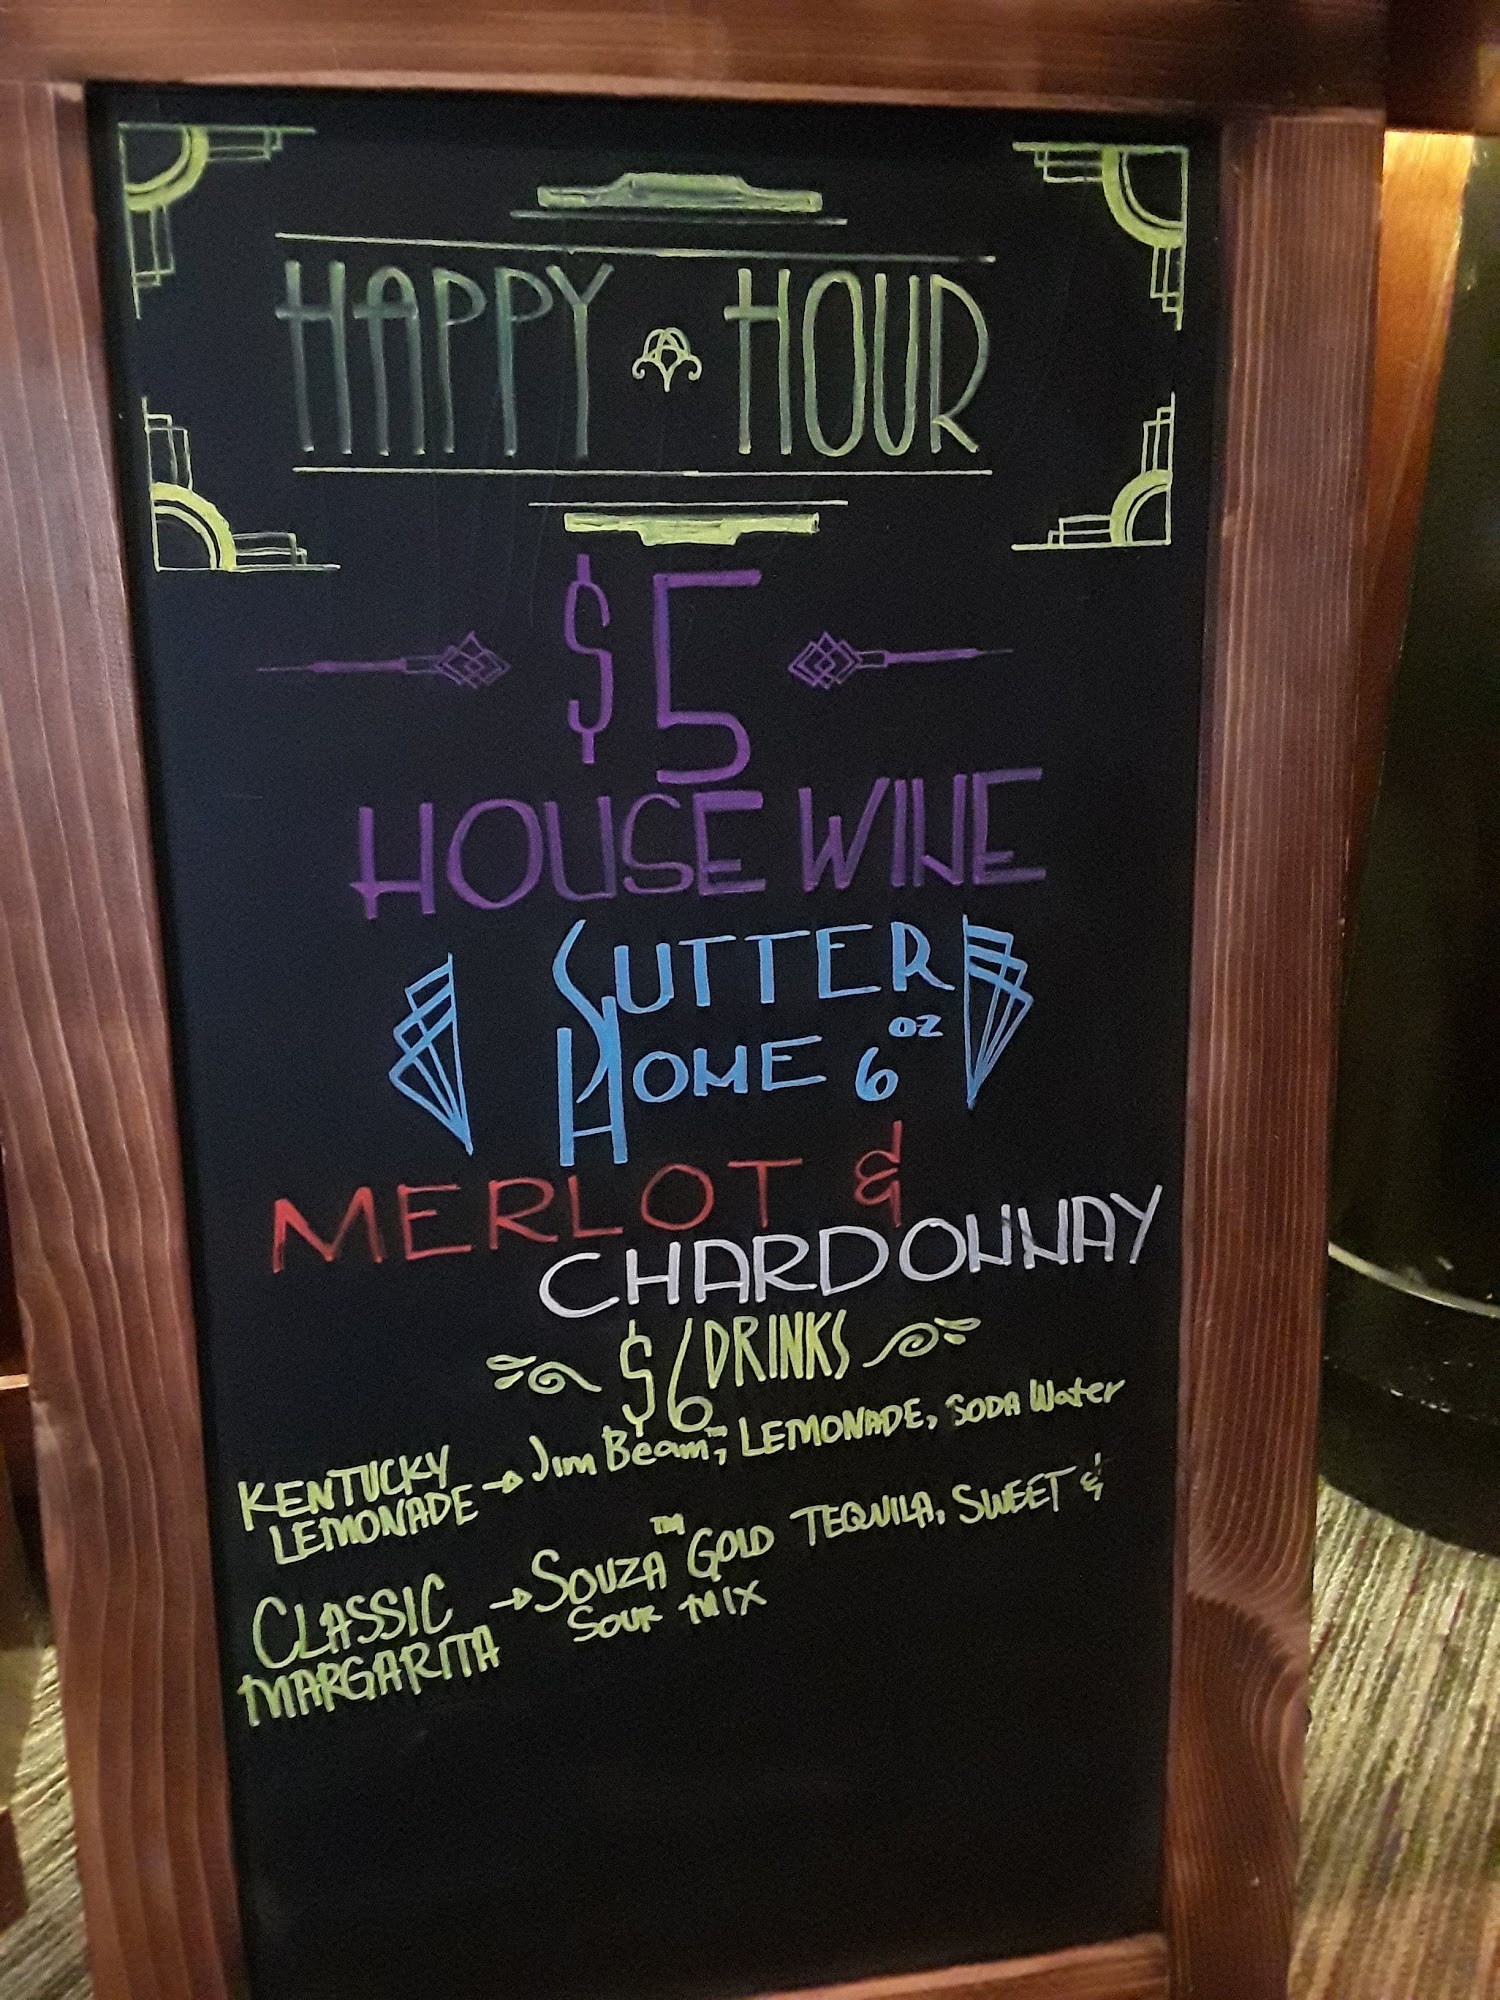 HAPPY HOUR
$5
HOUSE WINE
SUTTER
HOME 6 OZ
MERLOT &
CHARDONNAY
$6 DRINKS
KENTUCKY
LEMONADE → Jim Beam™, LEMONADE, SODA Water
CLASSIC
MARGARITA → SOUZA™ GOLD TEQUILA, SWEET &
SOUR MIX